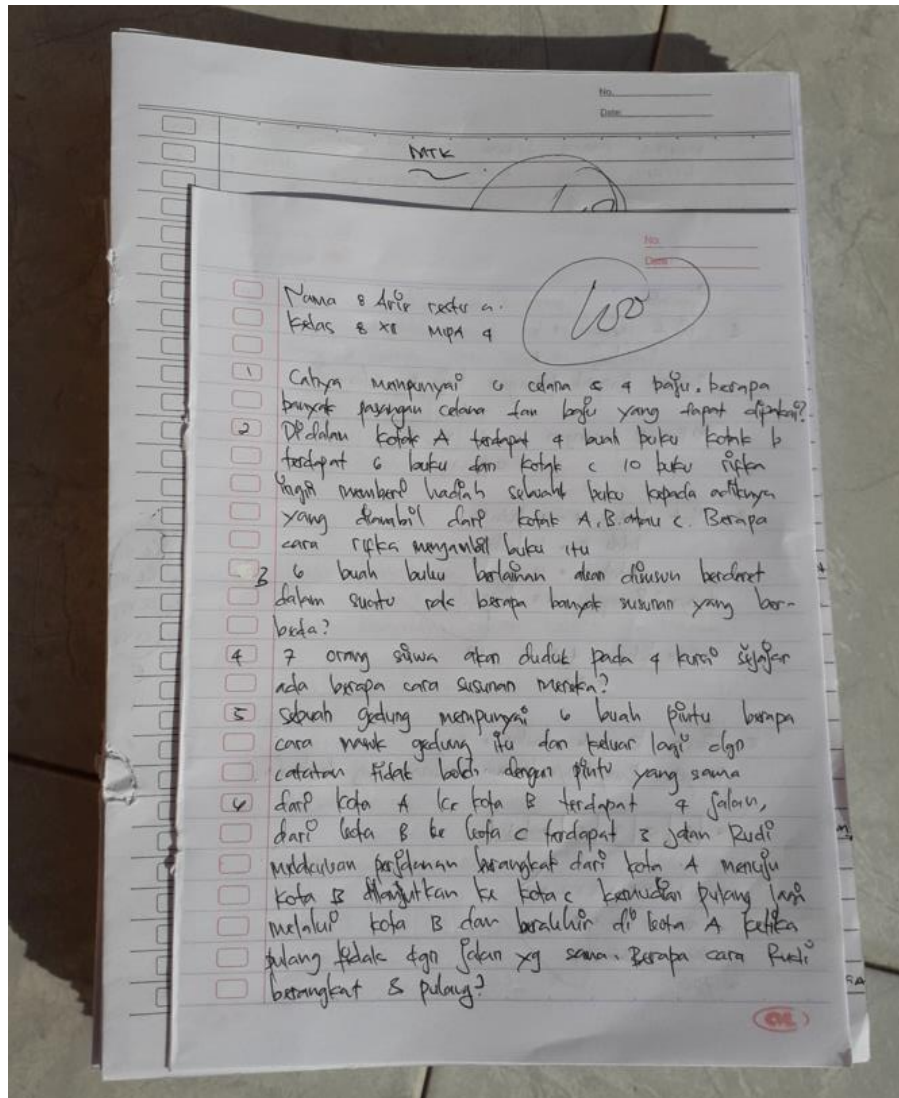 No.
Date:
MTK
No.
Date.
100
Nama : Arip restu a.
Kelas : XI MIPA 4
1 Cahya mempunyai 6 celana & 4 baju. berapa
banyak pasangan celana dan baju yang dapat dipakai?
2 Di dalam kotak A terdapat 4 buah buku kotak b
terdapat 6 buku dan kotak c 10 buku rifka
ingin memberi hadiah sebuah buku kepada adiknya
yang diambil dari kotak A, B. atau c. Berapa
cara rifka mengambil buku itu
3 6 buah buku berlainan akan disusun berderet
dalam suatu rak berapa banyak susunan yang ber-
beda?
4 7 orang siswa akan duduk pada 4 kursi sejajar
ada berapa cara susunan mereka?
5 sebuah gedung mempunyai 6 buah pintu berapa
cara masuk gedung itu dan keluar lagi dgn
catatan tidak boleh dengan pintu yang sama
6 dari kota A ke kota B terdapat 4 jalan,
dari kota B ke kota c terdapat 3 jalan Rudi
melakukan perjalanan berangkat dari kota A menuju
kota B dilanjutkan ke kota c kemudian pulang lagi
melalui kota B dan berakhir di kota A ketika
pulang tidak dgn jalan yg sama. Berapa cara Rudi
berangkat & pulang?